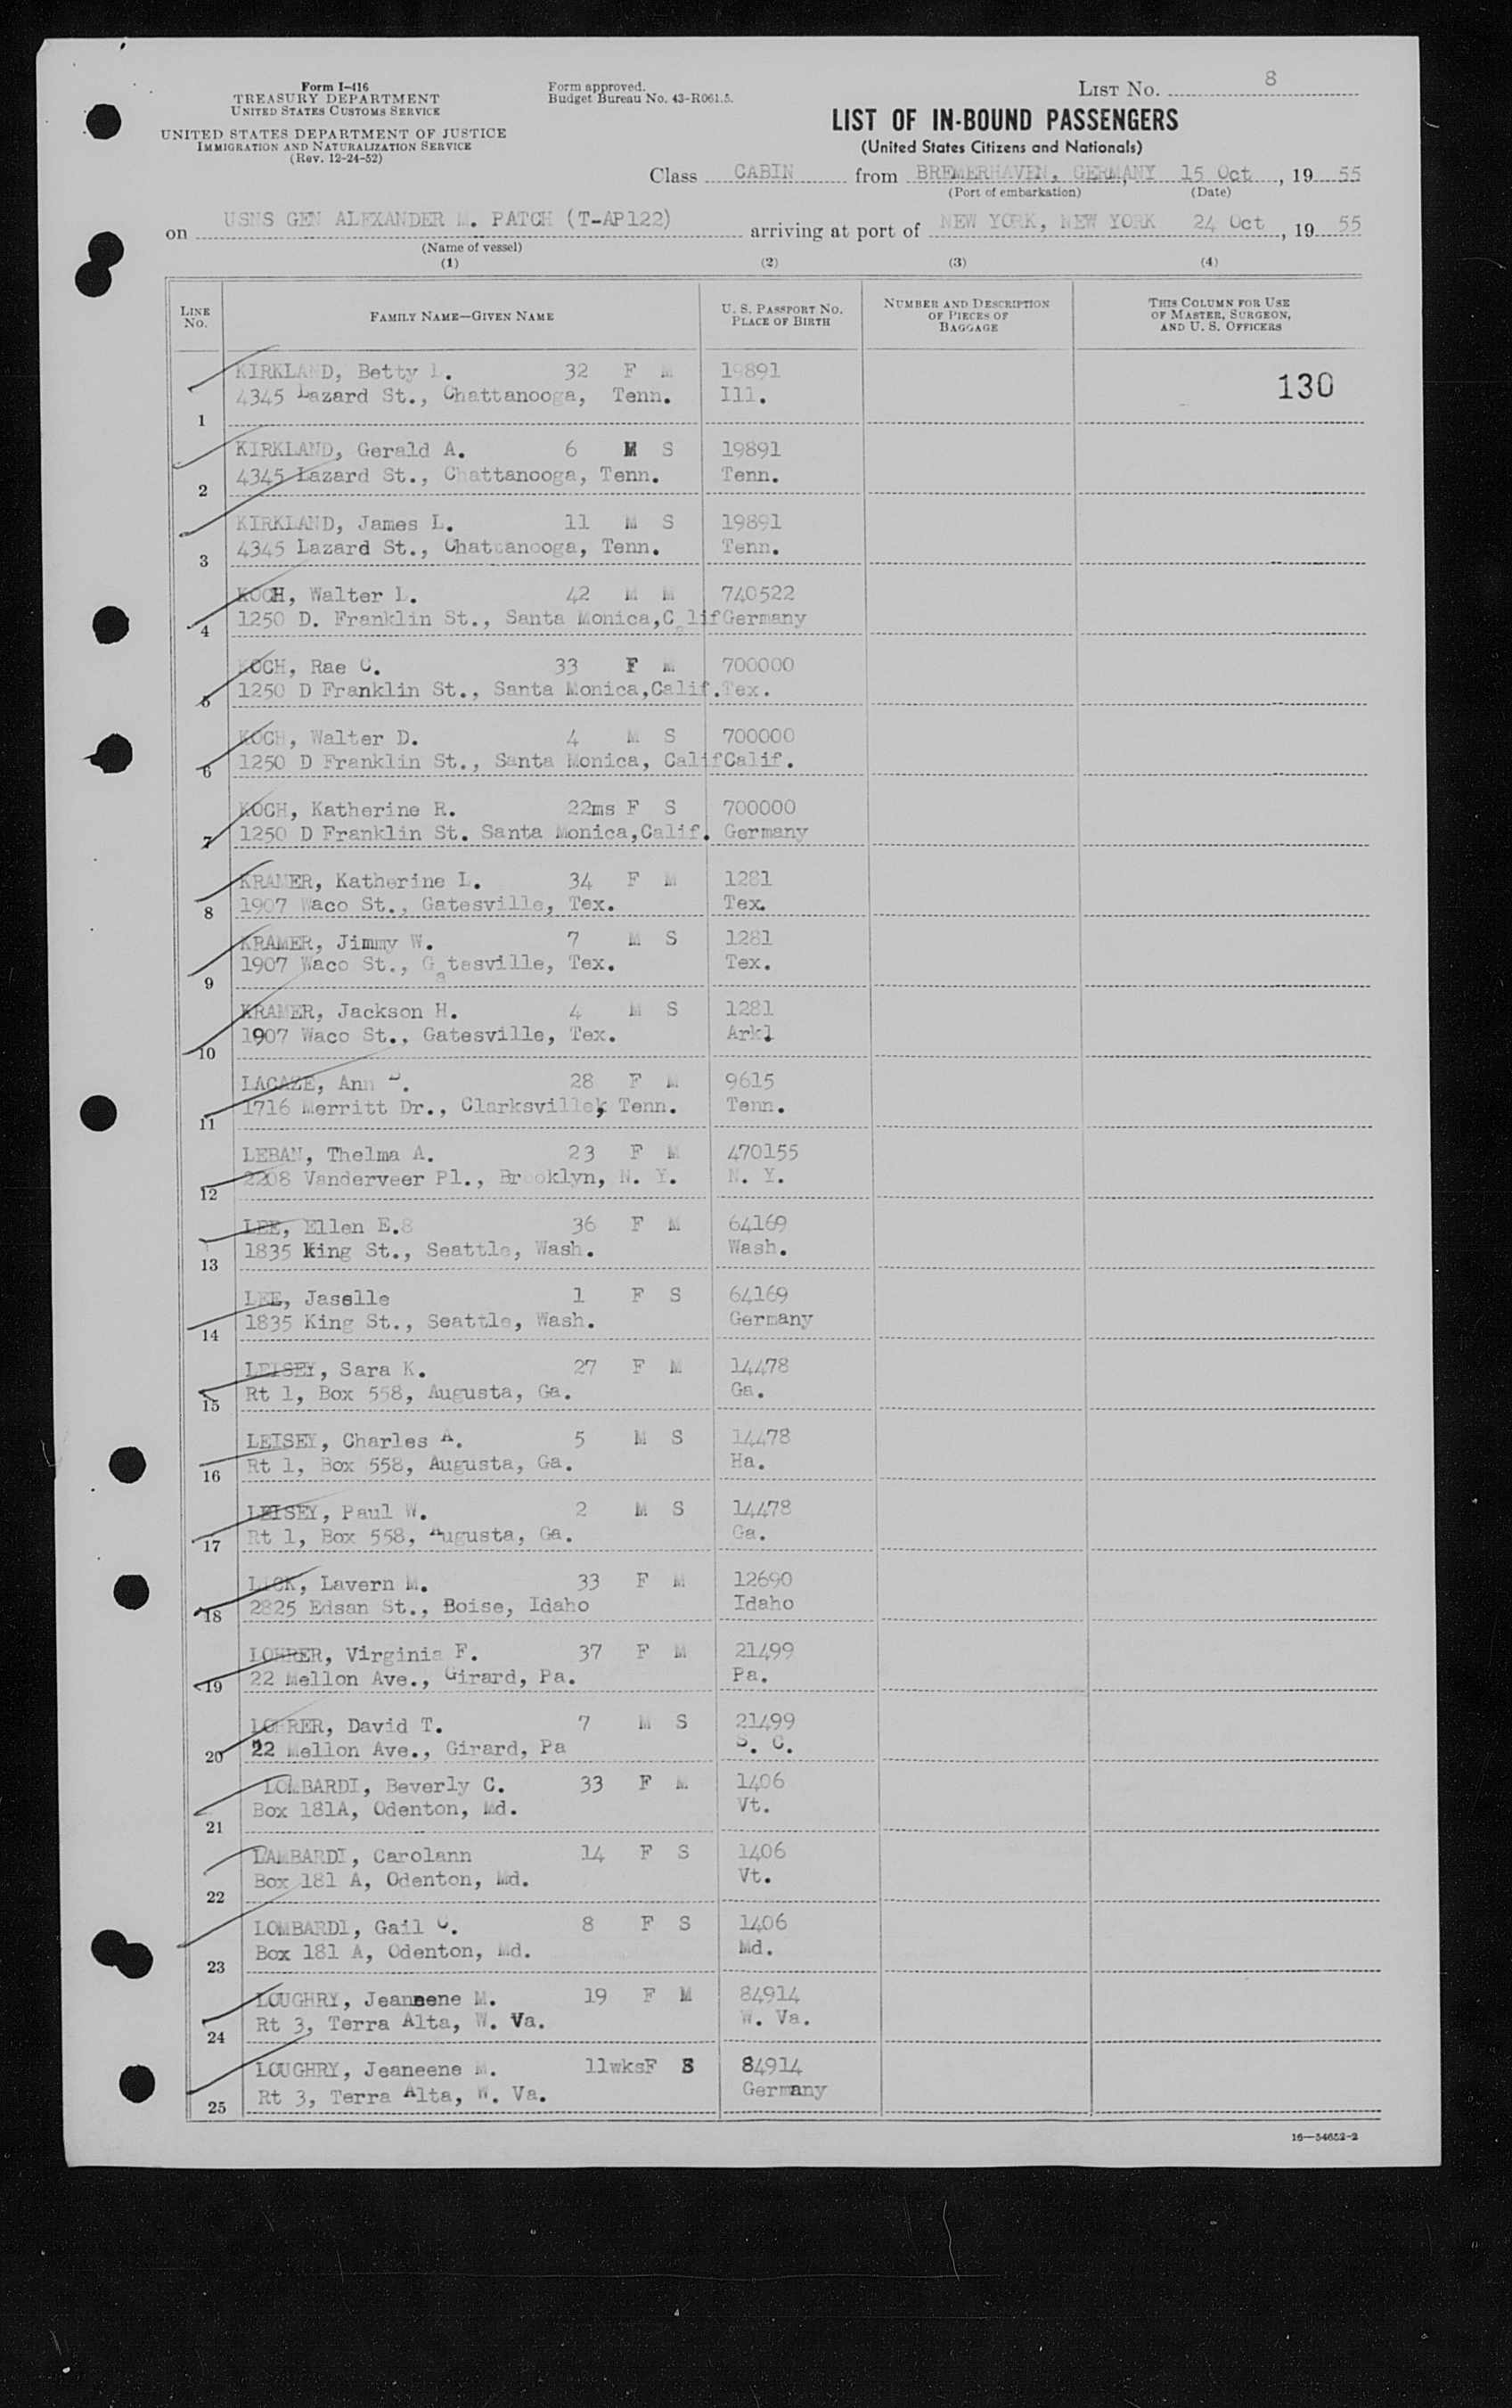 Form I-416
TREASURY DEPARTMENT
UNITED STATES CUSTOMS SERVICE
UNITED STATES DEPARTMENT OF JUSTICE
IMMIGRATION AND NATURALIZATION SERVICE
(Rev. 12-24-52)
Form approved.
Budget Bureau No. 43-R061.5.
LIST NO. 8
LIST OF IN-BOUND PASSENGERS
(United States Citizens and Nationals)
Class CABIN from BREMERHAVEN, GERMANY, 15 Oct, 1955
(Port of embarkation) (Date)
on USNS GEN ALEXANDER M. PATCH (T-AP122) arriving at port of NEW YORK, NEW YORK 24 Oct, 1955
(Name of vessel)
(1) (2) (3) (4)
LINE NO. FAMILY NAME—GIVEN NAME U. S. PASSPORT NO. PLACE OF BIRTH NUMBER AND DESCRIPTION OF PIECES OF BAGGAGE THIS COLUMN FOR USE OF MASTER, SURGEON, AND U. S. OFFICERS
KIRKLAND, Betty L. 32 F M 19891
130
1 4345 Lazard St., Chattanooga, Tenn. Ill.
KIRKLAND, Gerald A. 6 M S 19891
2 4345 Lazard St., Chattanooga, Tenn. Tenn.
KIRKLAND, James L. 11 M S 19891
3 4345 Lazard St., Chattanooga, Tenn. Tenn.
KOCH, Walter L. 42 M M 740522
4 1250 D. Franklin St., Santa Monica,Calif Germany
KOCH, Rae C. 33 F M 700000
5 1250 D Franklin St., Santa Monica,Calif. Tex.
KOCH, Walter D. 4 M S 700000
6 1250 D Franklin St., Santa Monica, Calif Calif.
KOCH, Katherine R. 22ms F S 700000
7 1250 D Franklin St. Santa Monica,Calif. Germany
KRAMER, Katherine L. 34 F M 1281
8 1907 Waco St., Gatesville, Tex. Tex.
KRAMER, Jimmy W. 7 M S 1281
9 1907 Waco St., Gatesville, Tex. Tex.
KRAMER, Jackson H. 4 M S 1281
10 1907 Waco St., Gatesville, Tex. Ark.
LACAZE, Ann 28 F M 9615
11 1716 Merritt Dr., Clarksville, Tenn. Tenn.
LEBAN, Thelma A. 23 F M 470155
12 2208 Vanderveer Pl., Brooklyn, N. Y. N. Y.
LEE, Ellen E.8 36 F M 64169
13 1835 King St., Seattle, Wash. Wash.
LEE, Jaselle 1 F S 64169
14 1835 King St., Seattle, Wash. Germany
LEISEY, Sara K. 27 F M 14478
15 Rt 1, Box 558, Augusta, Ga. Ga.
LEISEY, Charles A. 5 M S 14478
16 Rt 1, Box 558, Augusta, Ga. Ha.
LEISEY, Paul W. 2 M S 14478
17 Rt 1, Box 558, Augusta, Ga. Ga.
LICK, Lavern M. 33 F M 12690
18 2825 Edsan St., Boise, Idaho Idaho
LOHRER, Virginia F. 37 F M 21499
19 22 Mellon Ave., Girard, Pa. Pa.
LOHRER, David T. 7 M S 21499
20 22 Mellon Ave., Girard, Pa C.
LOMBARDI, Beverly C. 33 F M 1406
21 Box 181A, Odenton, Md. Vt.
LAMBARDI, Carolann 14 F S 1406
22 Box 181 A, Odenton, Md. Vt.
LOMBARDI, Gail C. 8 F S 1406
23 Box 181 A, Odenton, Md. Md.
LOUGHRY, Jeaneene M. 19 F M 84914
24 Rt 3, Terra Alta, W. Va. W. Va.
LOUGHRY, Jeaneene M. 11wksF S 84914
25 Rt 3, Terra Alta, W. Va. Germany
16—54652-2